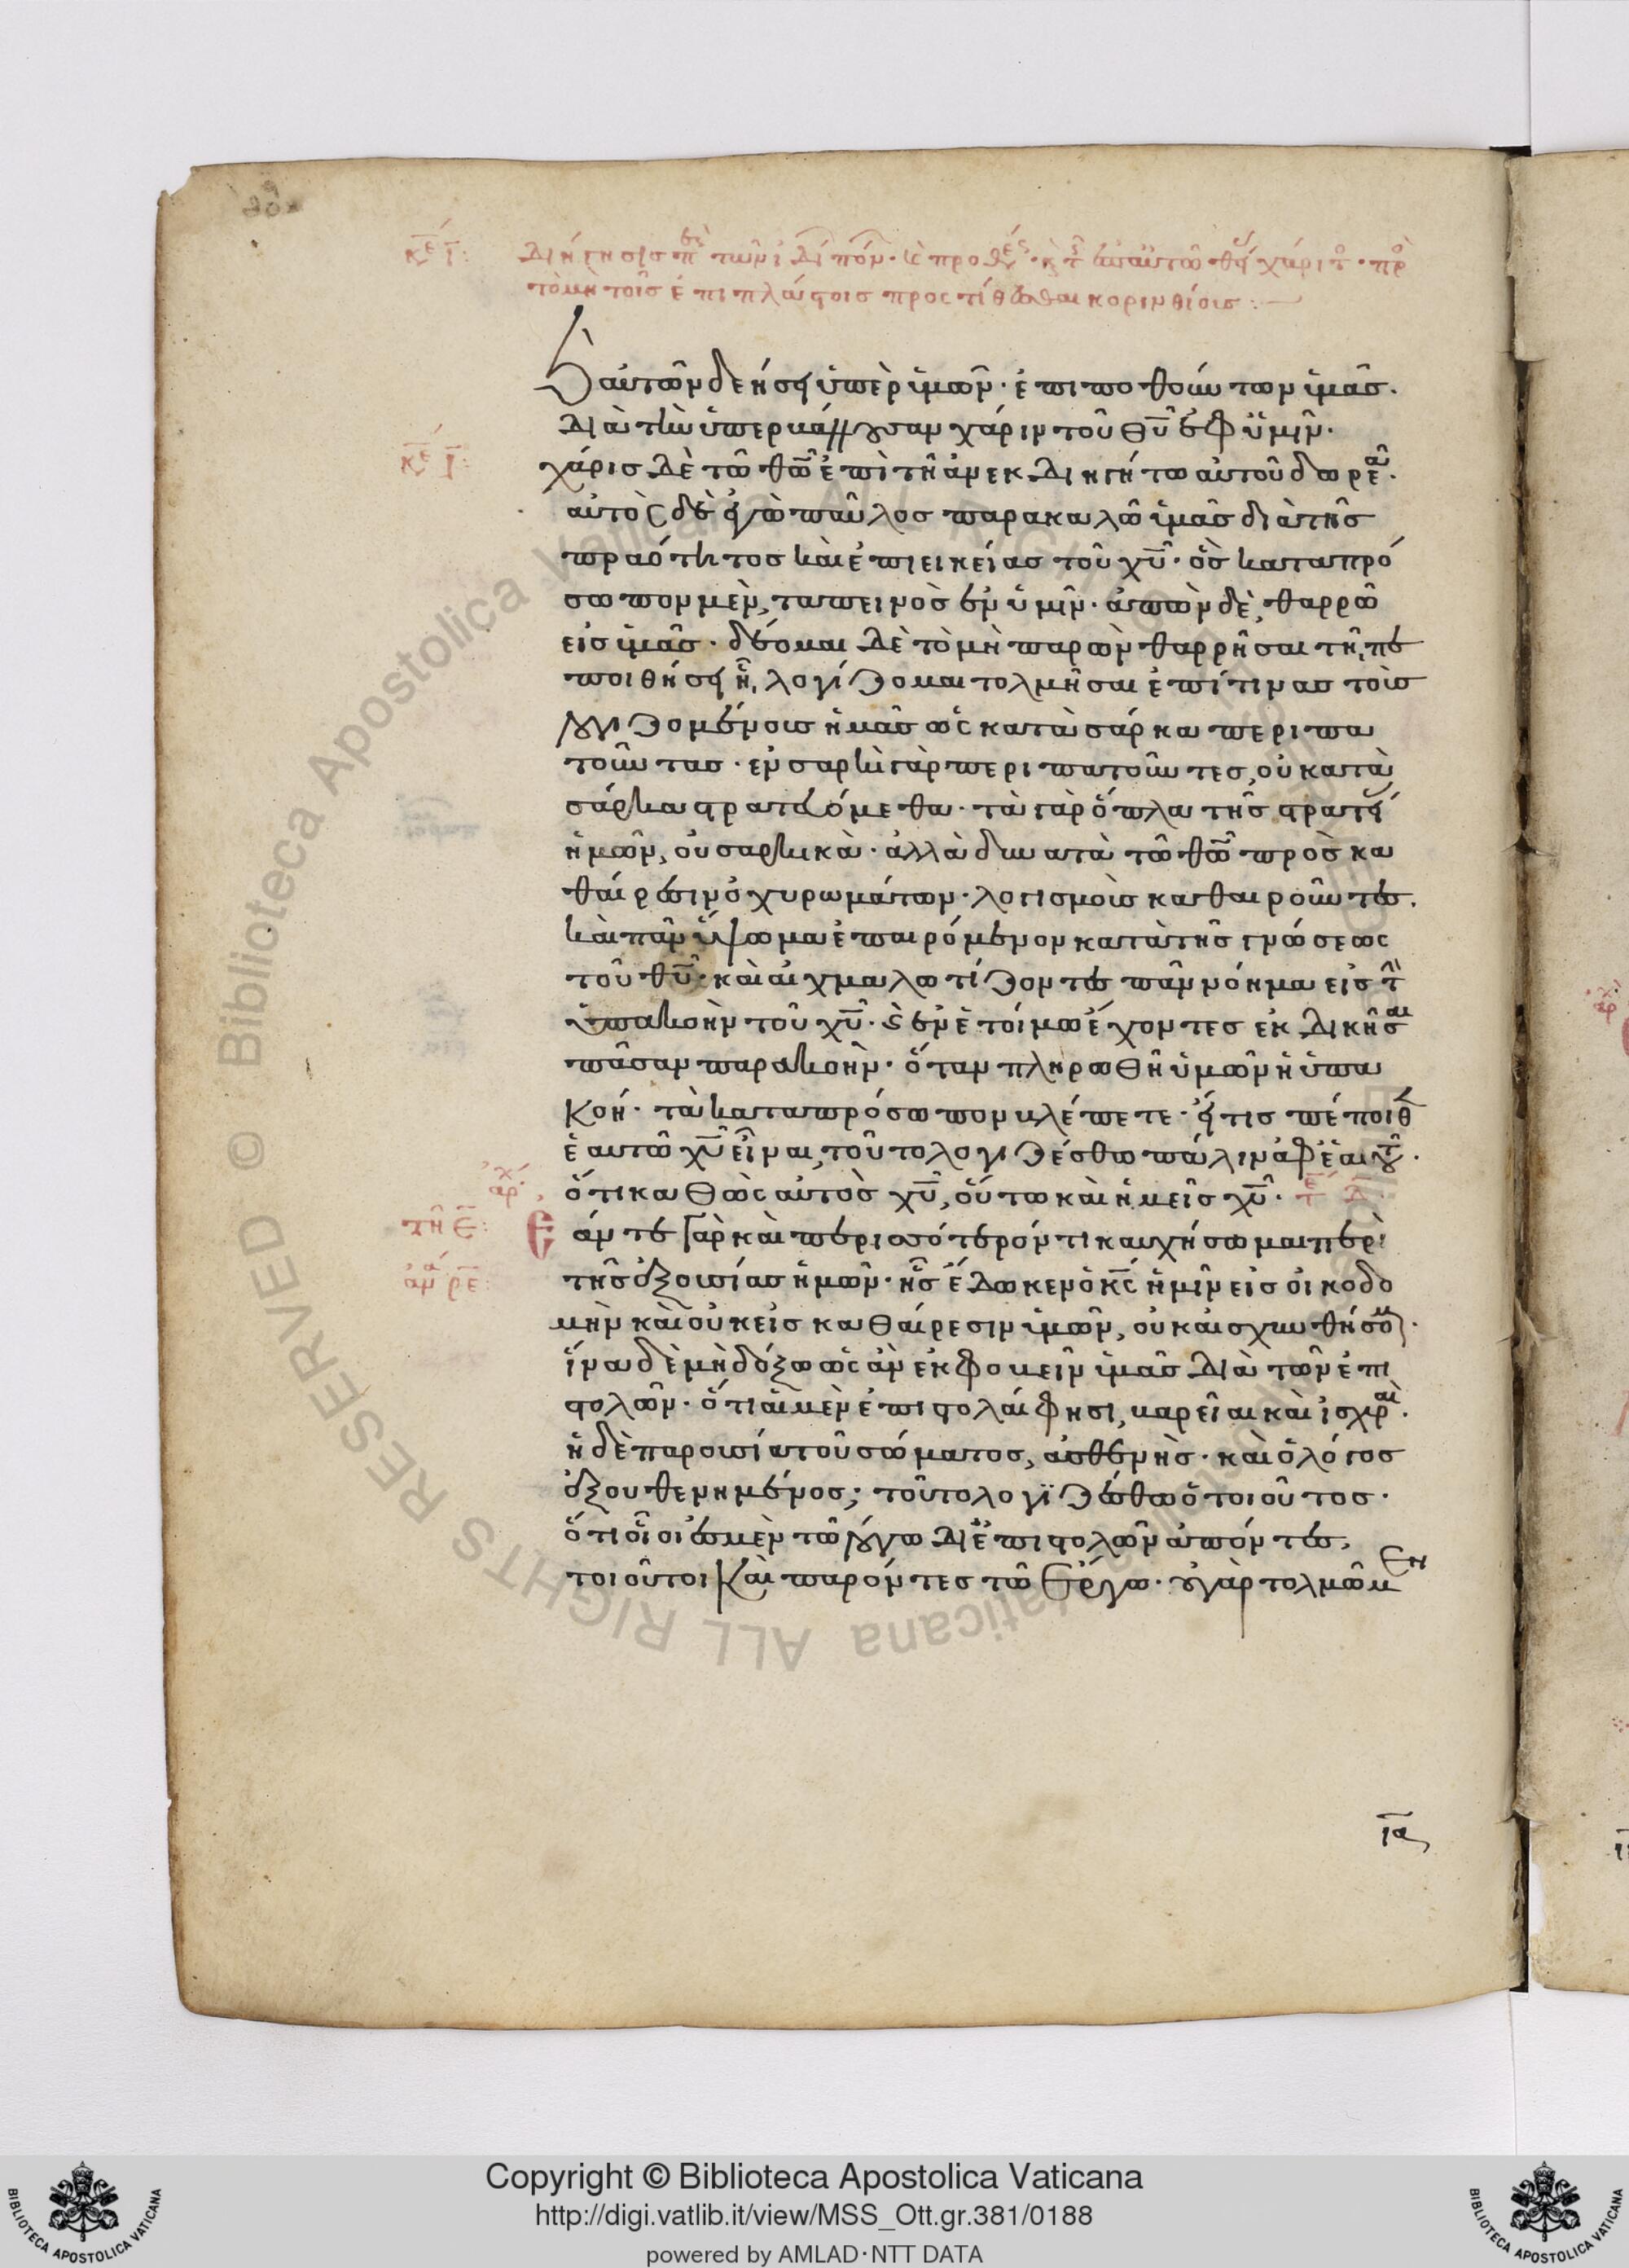 κε ι: διήγησις περὶ τῶν ἰδί πόν · προθέ · κ τ ἐν αὐτῶ θεί χάριτ · πρ
τὸ μὴ τοῖς ἐπιπλάστοις προστίθεσθαι κορινθίοις :—
ς αὐτῶν δεήσει ὑπὲρ ἡμῶν · ἐπιποθούντων ἡμᾶς ·
διὰ τὴν ὑπερβάλλουσαν χάριν τοῦ θυ ἐφ ὑμῖν ·
κε ι: χάρις δὲ τῶ θω ἐπὶ τῆ ἀνεκδιηγήτω αὐτοῦ δωρεᾶ ·
αὐτὸς δὲ ἐγὼ παῦλος παρακαλῶ ἡμᾶς διὰ τῆς
πραότητος καὶ ἐπιεικείας τοῦ χυ · ὃς καταπρό
σωπον μὲν, ταπεινὸς ἐν ὑμῖν · ἀπὼν δὲ, θαρρῶ
εἰς ἡμᾶς · δέομαι δὲ τὸ μὴ παρὼν θαρρῆσαι τῆ πε
ποιθήσει ἧ, λογίζομαι τολμῆσαι ἐπί τινας τοὺς
λογιζομένους ἡμᾶς ὡς κατὰ σάρκα περιπα
τοῦντας · ἐν σαρκὶ γὰρ περιπατοῦντες, οὐ κατὰ
σάρκα στρατευόμεθα · τὰ γὰρ ὅπλα τῆς στρατεί
ἡμῶν, οὐ σαρκικὰ · ἀλλὰ δυνατὰ τῶ θω πρὸς κα
θαίρεσιν ὀχυρωμάτων · λογισμοὺς καθαιροῦντες ·
καὶ πᾶν ὕψωμα ἐπαιρόμενον κατὰ τῆς γνώσεως
τοῦ θυ · καὶ αἰχμαλωτίζοντες πᾶν νόημα εἰς τ
ὑπακοὴν τοῦ χυ · ς ἐν ἑτοίμω ἔχοντες ἐκδικῆσαι
πᾶσαν παρακοὴν · ὅταν πληρωθῆ ὑμῶν ἡ ὑπα
κοή · τὰ καταπρόσωπον βλέπετε · εἴ τις πέποιθ
ἑαυτῶ χυ εἶναι, τοῦτο λογιζέσθω πάλιν ἀφ ἑαυτοῦ ·
ὅτι καθὼς αὐτὸς χυ, οὕτω καὶ ἡμεῖς χυ ·
ἀρχ
τῆ ε: Εάν τε γὰρ καὶ περισσότερόν τι καυχήσωμαι περὶ
τῆς ἐξουσίας ἡμῶν · ἧς ἔδωκεν ὁ κς ἡμῖν εἰς οἰκοδο
μὴν καὶ οὐκ εἰς καθαίρεσιν ἡμῶν, οὐκ αἰσχυνθήσομ ·
ἵνα δὲ μὴ δόξω ὡς ἂν ἐκφοβεῖν ἡμᾶς διὰ τῶν ἐπι
στολῶν · ὅτι αἱ μὲν ἐπιστολαί φησι, βαρεῖαι καὶ ἰσχυραὶ ·
ἡ δὲ παρουσία τοῦ σώματος, ἀσθενὴς · καὶ ὁ λόγος
ἐξουθενημένος; τοῦτο λογιζέσθω ὁ τοιοῦτος ·
ὅτι οἷοί ἐσμὲν τῶ λόγω δι ἐπιστολῶν ἀπόντες,
τοιοῦτοι καὶ παρόντες τῶ ἔργω · οὐ γὰρ τολμῶμεν
ια
Copyright © Biblioteca Apostolica Vaticana
http://digi.vatlib.it/view/MSS_Ott.gr.381/0188
powered by AMLAD·NTT DATA